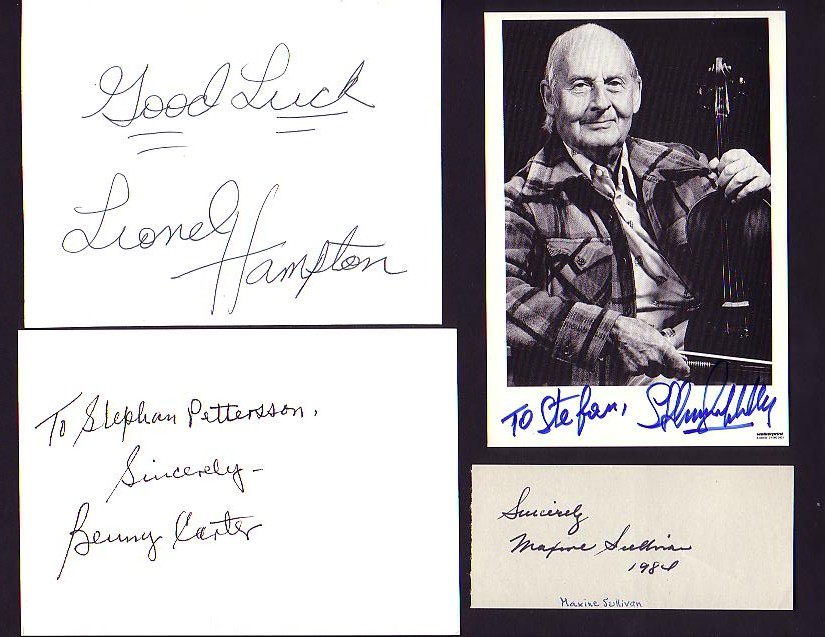 Good Luck
Lionel Hampton
To Stephan Pettersson.
Sincerely –
Benny Carter
TO Stefan,
Sincerely
Maxine Sullivan
1984
Maxine Sullivan